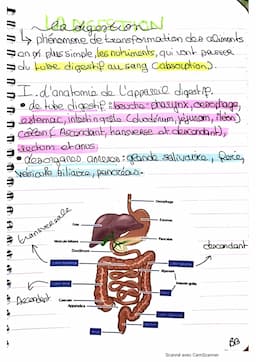 LA DIGESTION
La digestion
↳ phénomène de transformation des aliments
en plus simple, les nutriments, qui vont passer
du tube digestif au sang (absorption).
I. d'anatomie de l'appareil digestif.
• de tube digestif: bouche pharynx, oesophage,
estomac, intestin grêle (duodénum, jéjunum, iléon)
colon (Ascendant, transverse et descendant),
rectum et anus.
• des organes annexes: glande salivaire, foie,
vésicule biliaire, pancréas.
transversale
descendant
Ascendant
Oesophage
Foie
Estomac
Vésicule biliaire
Pancréas
Duodénum
Jéjunum
Appendice
Scanné avec CamScanner